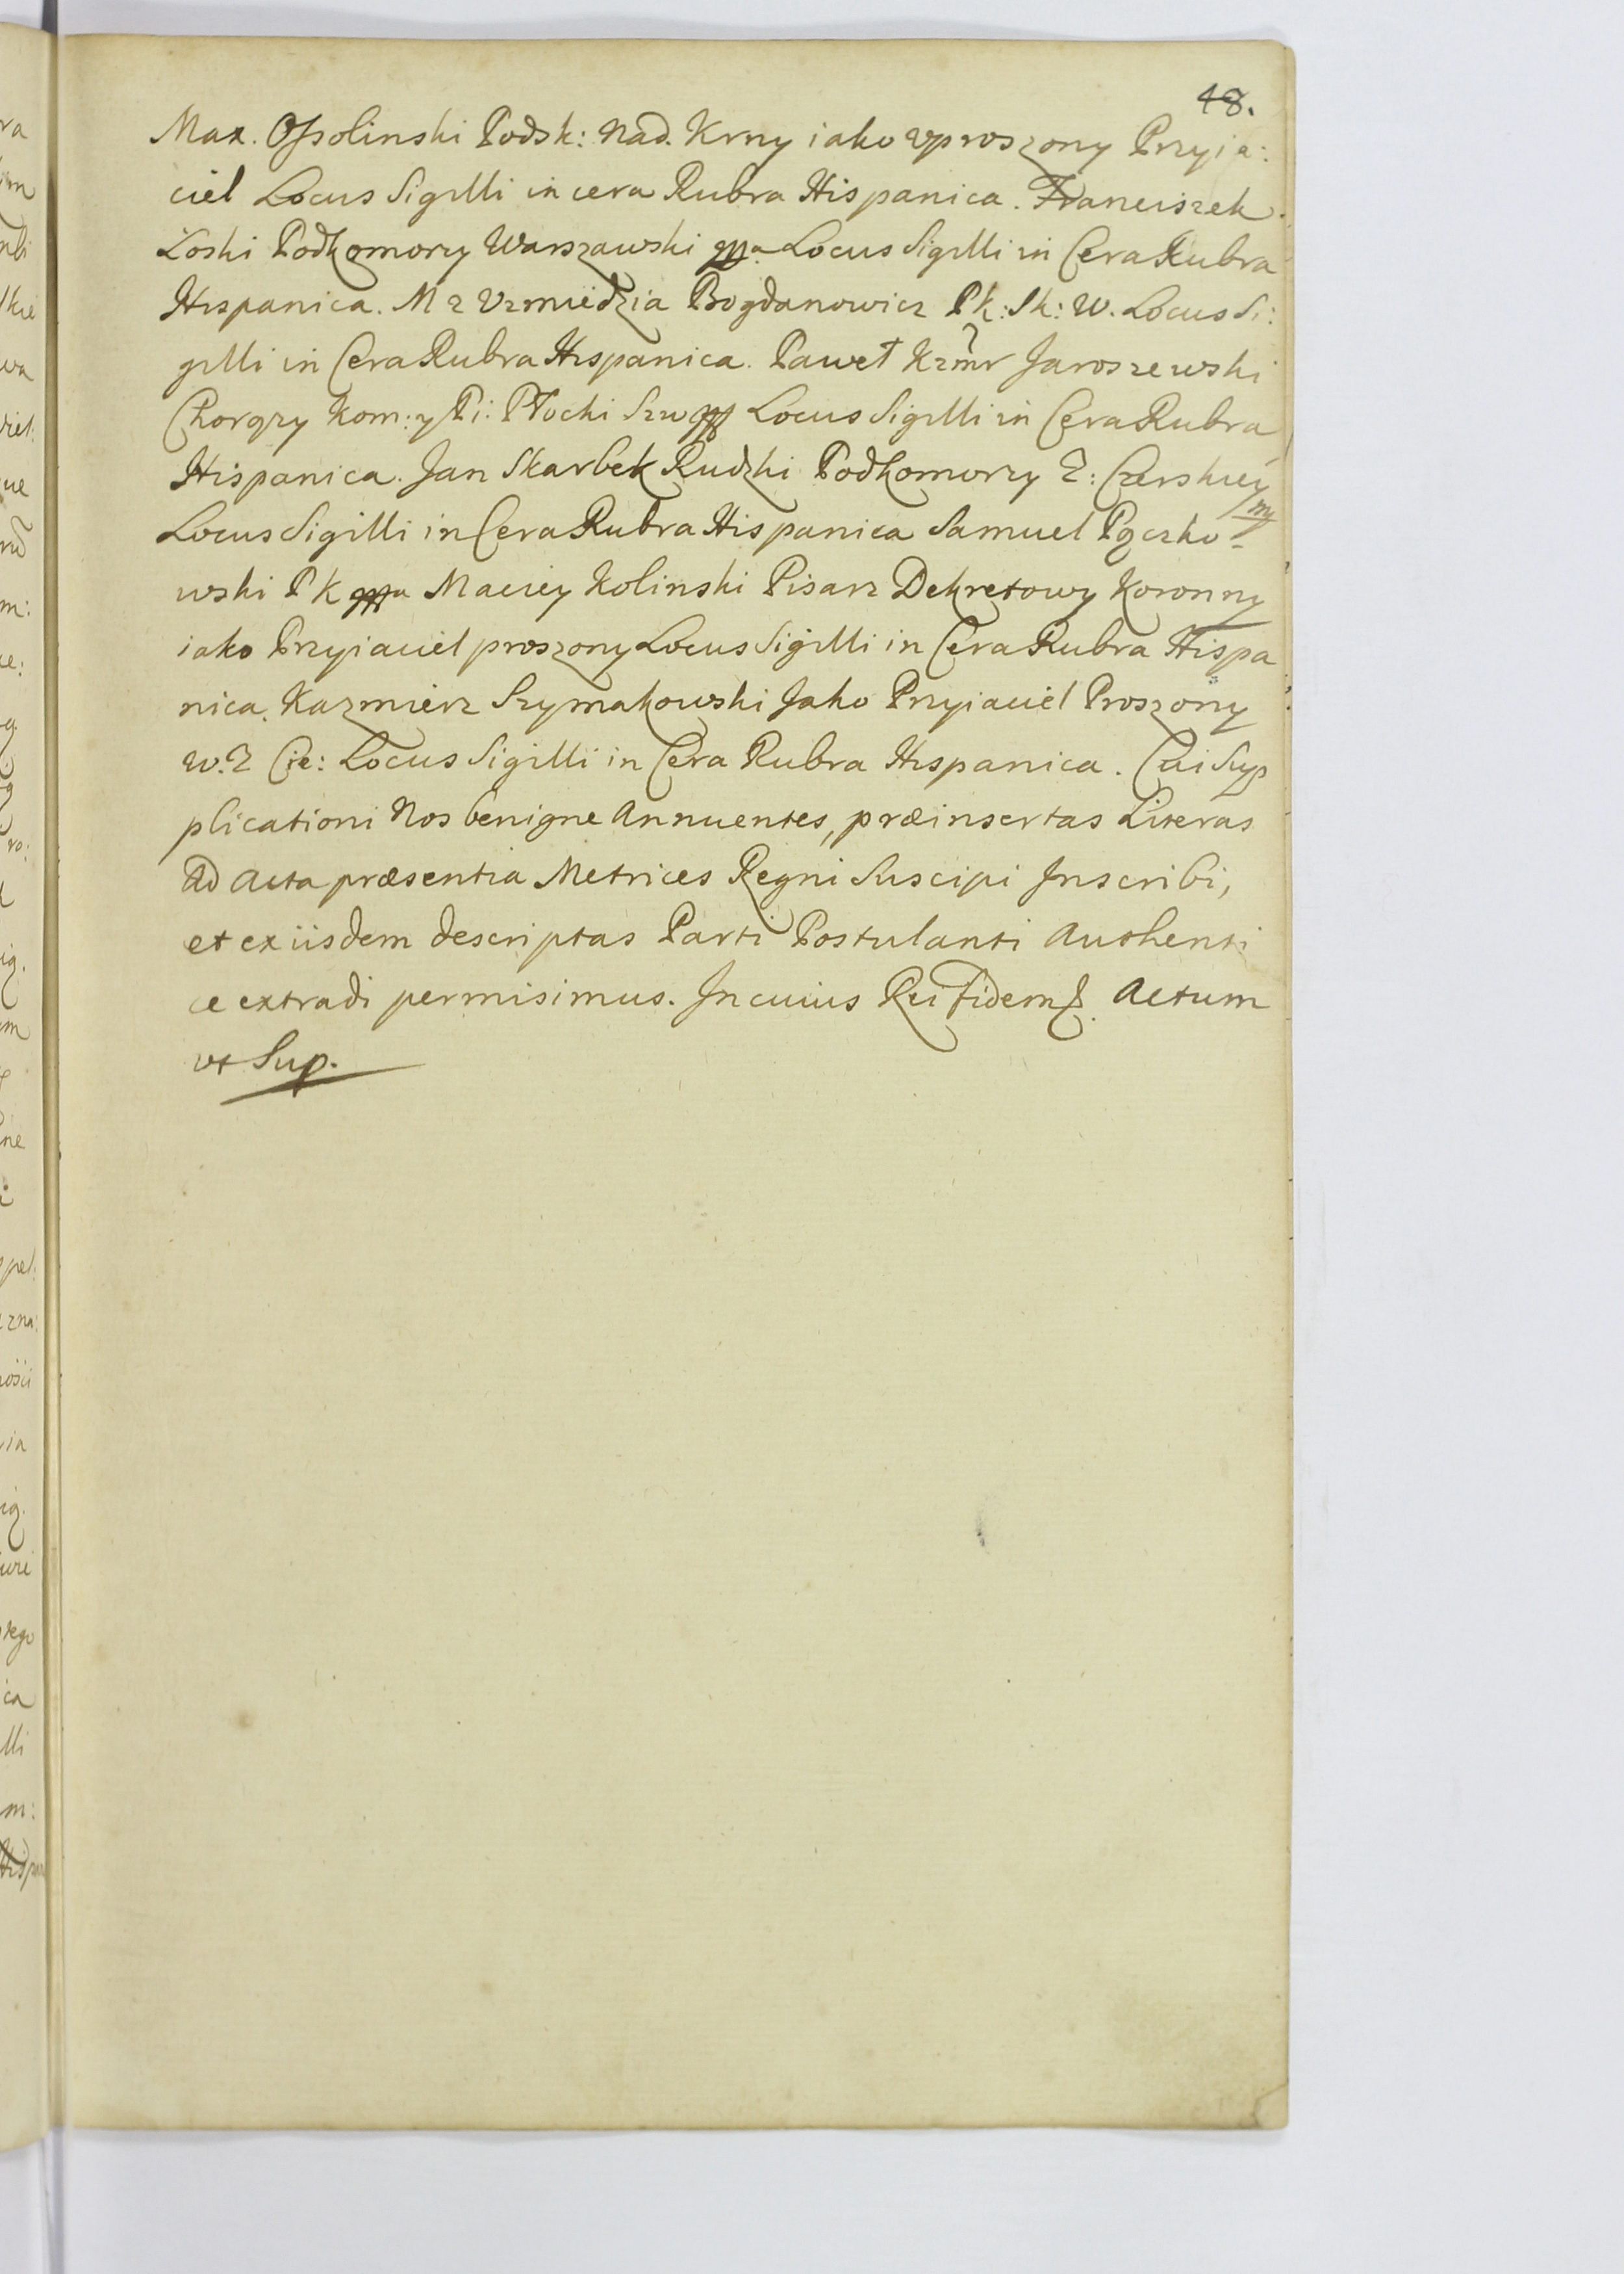 48.
Max. Ossolinski Podsk: Nad. Krny iako vproszony Przyia:
ciel Locus Sigilli in cera Rubra Hispanica. Franciszek
Łoski Podkomorzy Warszawski Locus Sigilli in Cera Rubra
Hispanica. M z Vrmiedzia Bogdanowicz Pk: Sk: W. Locus Si:
gilli in Cera Rubra Hispanica. Paweł Kzmr Jaroszewski
Chorąży Kom: y Pi: Płocki Locus Sigilli in Cera Rubra
Hispanica. Jan Skarbek Rudzki Podkomorzy Z: Czerskiey
mp
Locus Sigilli in Cera Rubra Hispanica Samuel Pączko-
wski P K Maciey Kolinski Pisarz Dekretowy Koronny
iako Przyiaciel proszony Locus Sigilli in Cera Rubra Hispa
nica. Kazmierz Szymakowski Jako Przyiaciel Proszony
w. Z Cie: Locus Sigilli in Cera Rubra Hispanica. Cui Sup
plicationi Nos benigne Annuentes, præinsertas Literas
Ad Acta præsentia Metrices Regni Suscipi Inscribi,
et ex iisdem descriptas Parti Postulanti Authenti
ce extradi permisimus. In cuius Rei fidem &. Actum
vt Sup.